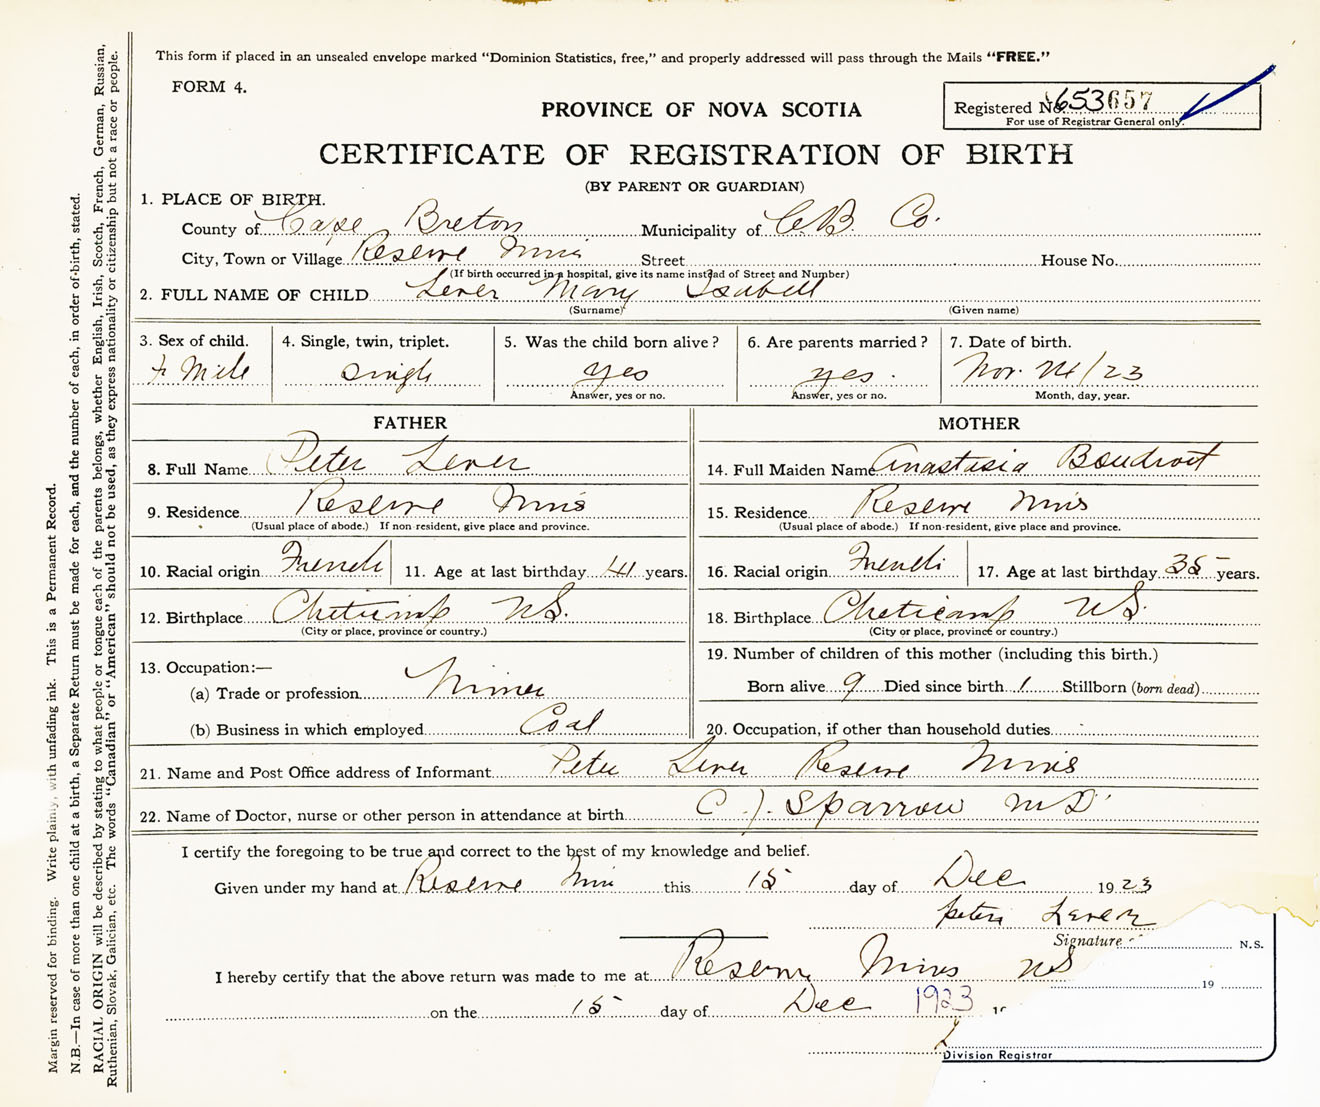 This form if placed in an unsealed envelope marked "Dominion Statistics, free," and properly addressed will pass through the Mails "FREE."
FORM 4.
Registered No. 653657
For use of Registrar General only.
PROVINCE OF NOVA SCOTIA
CERTIFICATE OF REGISTRATION OF BIRTH
(BY PARENT OR GUARDIAN)
1. PLACE OF BIRTH.
County of Cape Breton Municipality of C.B. Co.
City, Town or Village Reserve Mines Street House No.
(If birth occurred in a hospital, give its name instead of Street and Number)
2. FULL NAME OF CHILD Lever Mary Isabell
(Surname) (Given name)
3. Sex of child. 4. Single, twin, triplet. 5. Was the child born alive? 6. Are parents married? 7. Date of birth.
single yes yes. Nov. /23
Answer, yes or no. Answer, yes or no. Month, day, year.
FATHER MOTHER
8. Full Name Peter Lever 14. Full Maiden Name Anastasia Boudroit
9. Residence Reserve Mines 15. Residence Reserve Mines
(Usual place of abode.) If non-resident, give place and province. (Usual place of abode.) If non-resident, give place and province.
10. Racial origin French 11. Age at last birthday 41 years. 16. Racial origin French 17. Age at last birthday 35 years.
12. Birthplace Cheticamp N.S. 18. Birthplace Cheticamp N.S.
(City or place, province or country.) (City or place, province or country.)
13. Occupation:— 19. Number of children of this mother (including this birth.)
(a) Trade or profession Miner Born alive 9 Died since birth 1 Stillborn (born dead)
(b) Business in which employed Coal 20. Occupation, if other than household duties
21. Name and Post Office address of Informant Peter Lever Reserve Mines
22. Name of Doctor, nurse or other person in attendance at birth C. J. Sparrow M D
I certify the foregoing to be true and correct to the best of my knowledge and belief.
Given under my hand at Reserve Mines this 15 day of Dec 1923
Peter Lever
Signature N.S.
I hereby certify that the above return was made to me at Reserve Mines NS
19
on the 15 day of Dec 1923
Division Registrar
Margin reserved for binding. Write plainly, with unfading ink. This is a Permanent Record.
N.B.—In case of more than one child at a birth, a Separate Return must be made for each, and the number of each, in order of birth, stated.
RACIAL ORIGIN will be described by stating to what people or tongue each of the parents belongs, whether English, Irish, Scotch, French, German, Russian,
Ruthenian, Slovak, Galician, etc. The words "Canadian" or "American" should not be used, as they express nationality or citizenship but not a race or people.